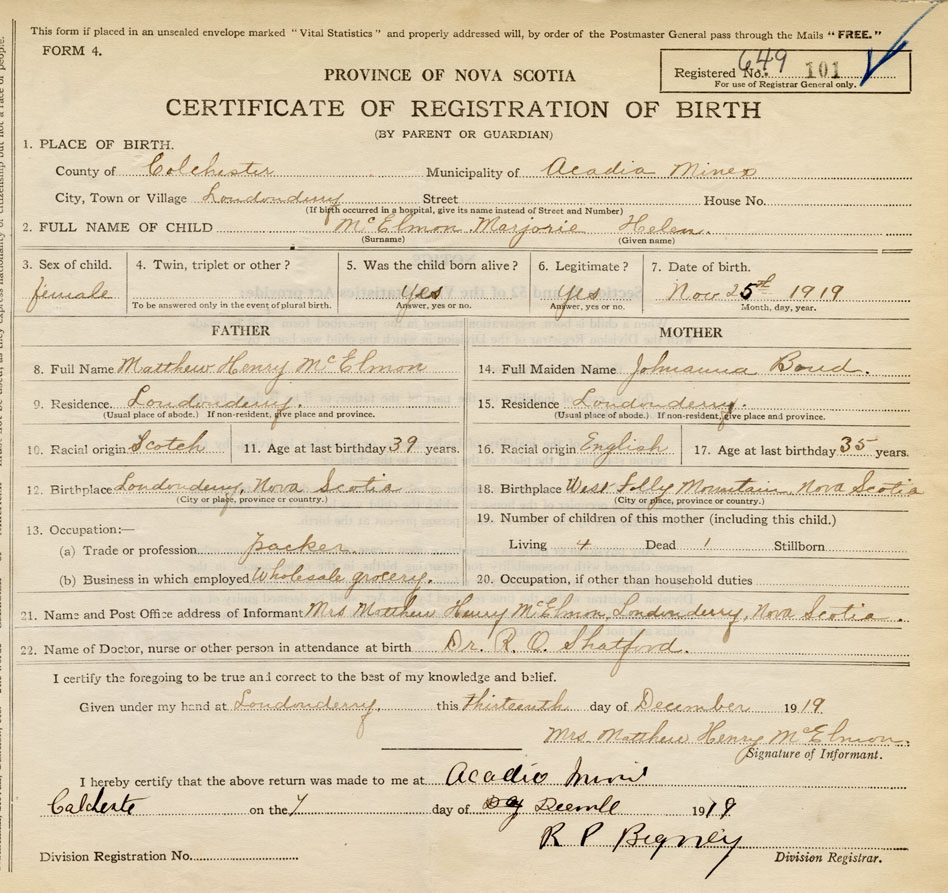 This form if placed in an unsealed envelope marked "Vital Statistics" and properly addressed will, by order of the Postmaster General pass through the Mails "FREE."
FORM 4.
649
Registered No. 101
For use of Registrar General only.
PROVINCE OF NOVA SCOTIA
CERTIFICATE OF REGISTRATION OF BIRTH
(BY PARENT OR GUARDIAN)
1. PLACE OF BIRTH.
County of Colchester Municipality of Acadia Mines
City, Town or Village Londonderry Street House No.
(If birth occurred in a hospital, give its name instead of Street and Number)
2. FULL NAME OF CHILD McElmon Marjorie Helen.
(Surname) (Given name)
3. Sex of child. 4. Twin, triplet or other? 5. Was the child born alive? 6. Legitimate? 7. Date of birth.
female Yes Yes Nov 25th 1919
To be answered only in the event of plural birth. Answer, yes or no. Answer, yes or no. Month, day, year.
FATHER MOTHER
8. Full Name Matthew Henry McElmon 14. Full Maiden Name Johnanna Bond.
9. Residence. Londonderry. 15. Residence Londonderry.
(Usual place of abode.) If non-resident, give place and province. (Usual place of abode.) If non-resident, give place and province.
10. Racial origin Scotch 11. Age at last birthday 39 years. 16. Racial origin English 17. Age at last birthday 35 years.
12. Birthplace Londonderry, Nova Scotia 18. Birthplace West Folly Mountain, Nova Scotia
(City or place, province or country.) (City or place, province or country.)
13. Occupation:— 19. Number of children of this mother (including this child.)
(a) Trade or profession packer. Living 4 Dead 1 Stillborn
(b) Business in which employed Wholesale grocery. 20. Occupation, if other than household duties
21. Name and Post Office address of Informant Mrs Matthew Henry McElmon, Londonderry, Nova Scotia.
22. Name of Doctor, nurse or other person in attendance at birth Dr. R. O. Shatford.
I certify the foregoing to be true and correct to the best of my knowledge and belief.
Given under my hand at Londonderry, this thirteenth day of December 1919
Mrs. Matthew Henry McElmon.
Signature of Informant.
I hereby certify that the above return was made to me at Acadia
on the day of 1919
R P Bigney
Division Registration No. Division Registrar.